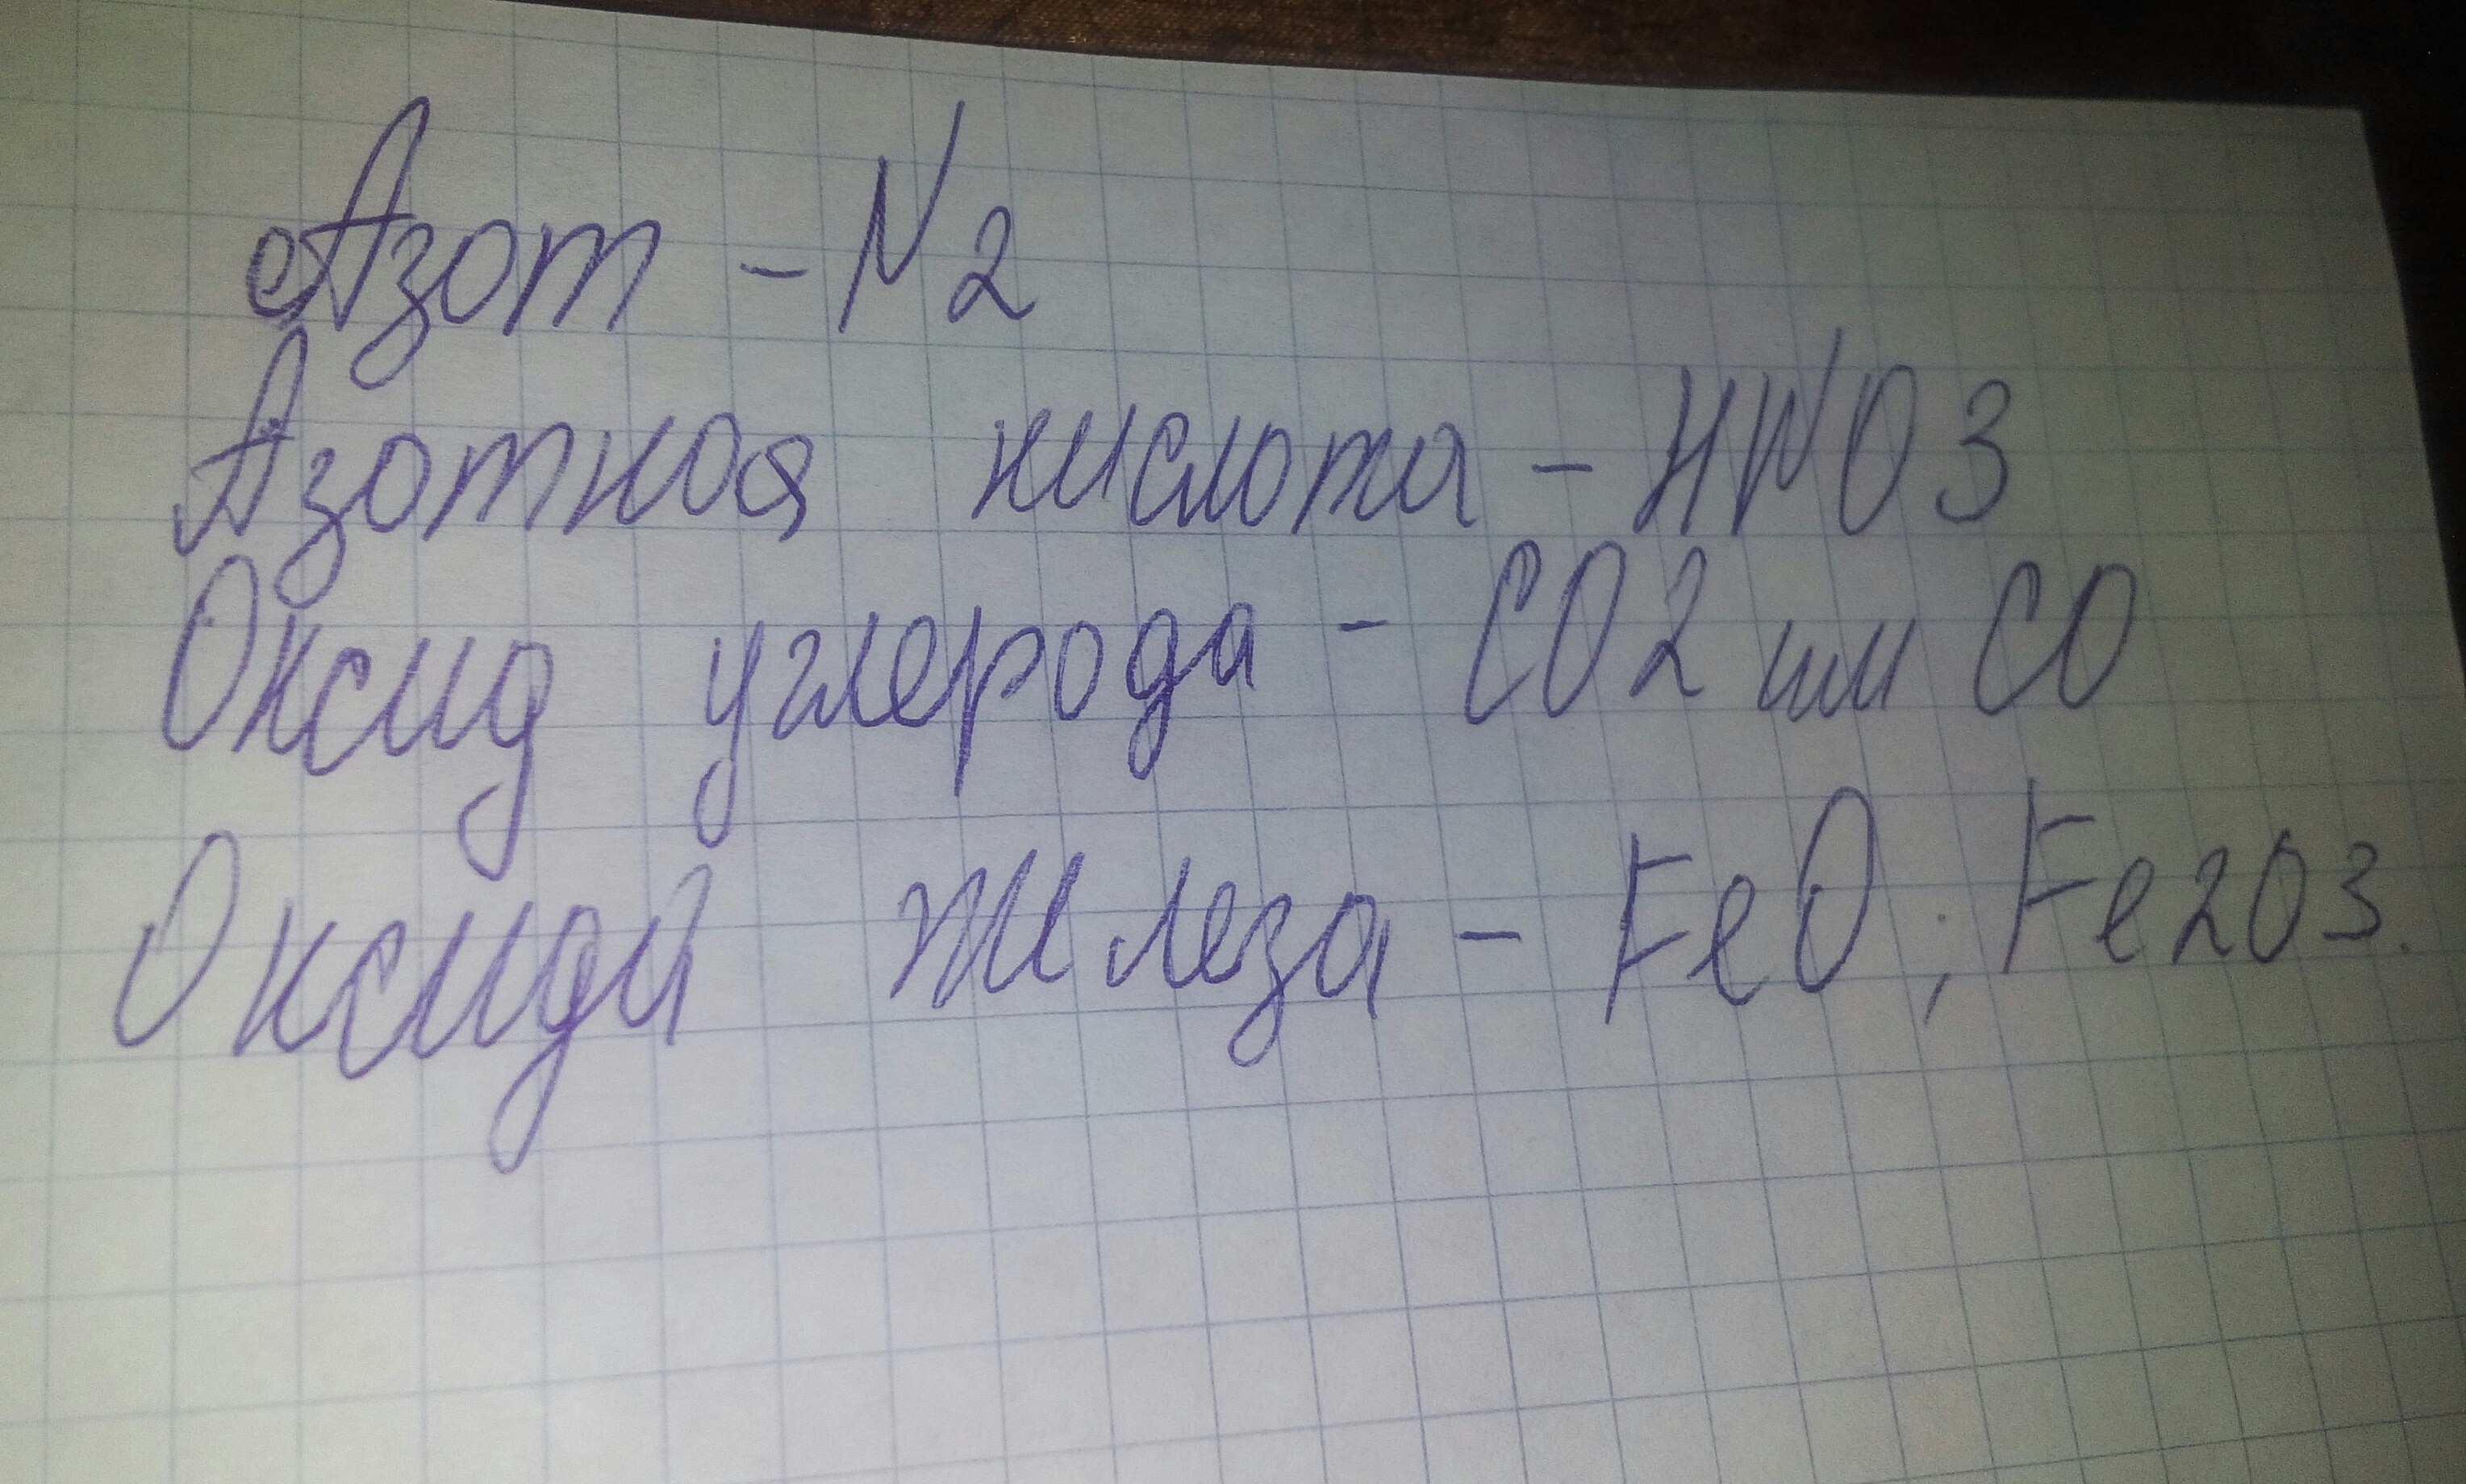 Азот - N2
Азотная кислота - HNO3
Оксид углерода - CO2 или CO
Оксиды железа - FeO; Fe2O3.